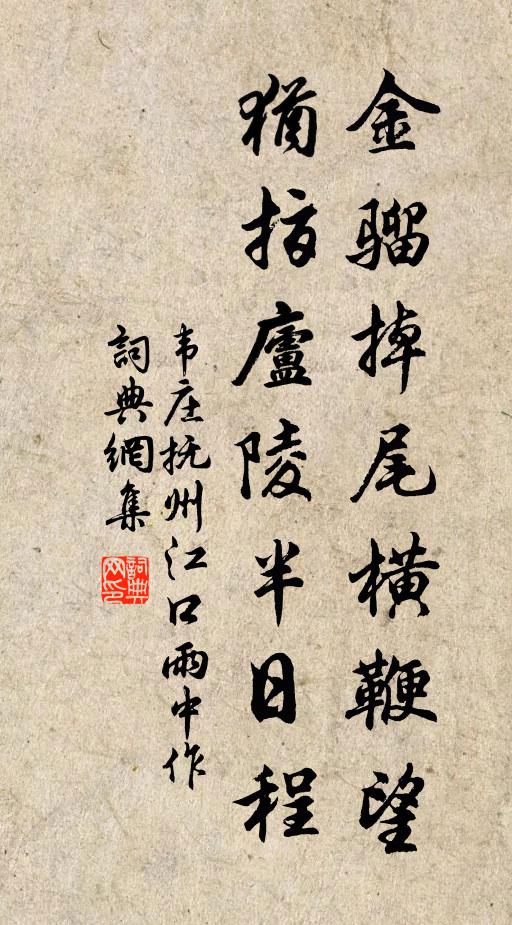 金骝掉尾横鞭望
猶指廬陵半日程
韦庄抚州江口雨中作
詞典網集
詞典网印